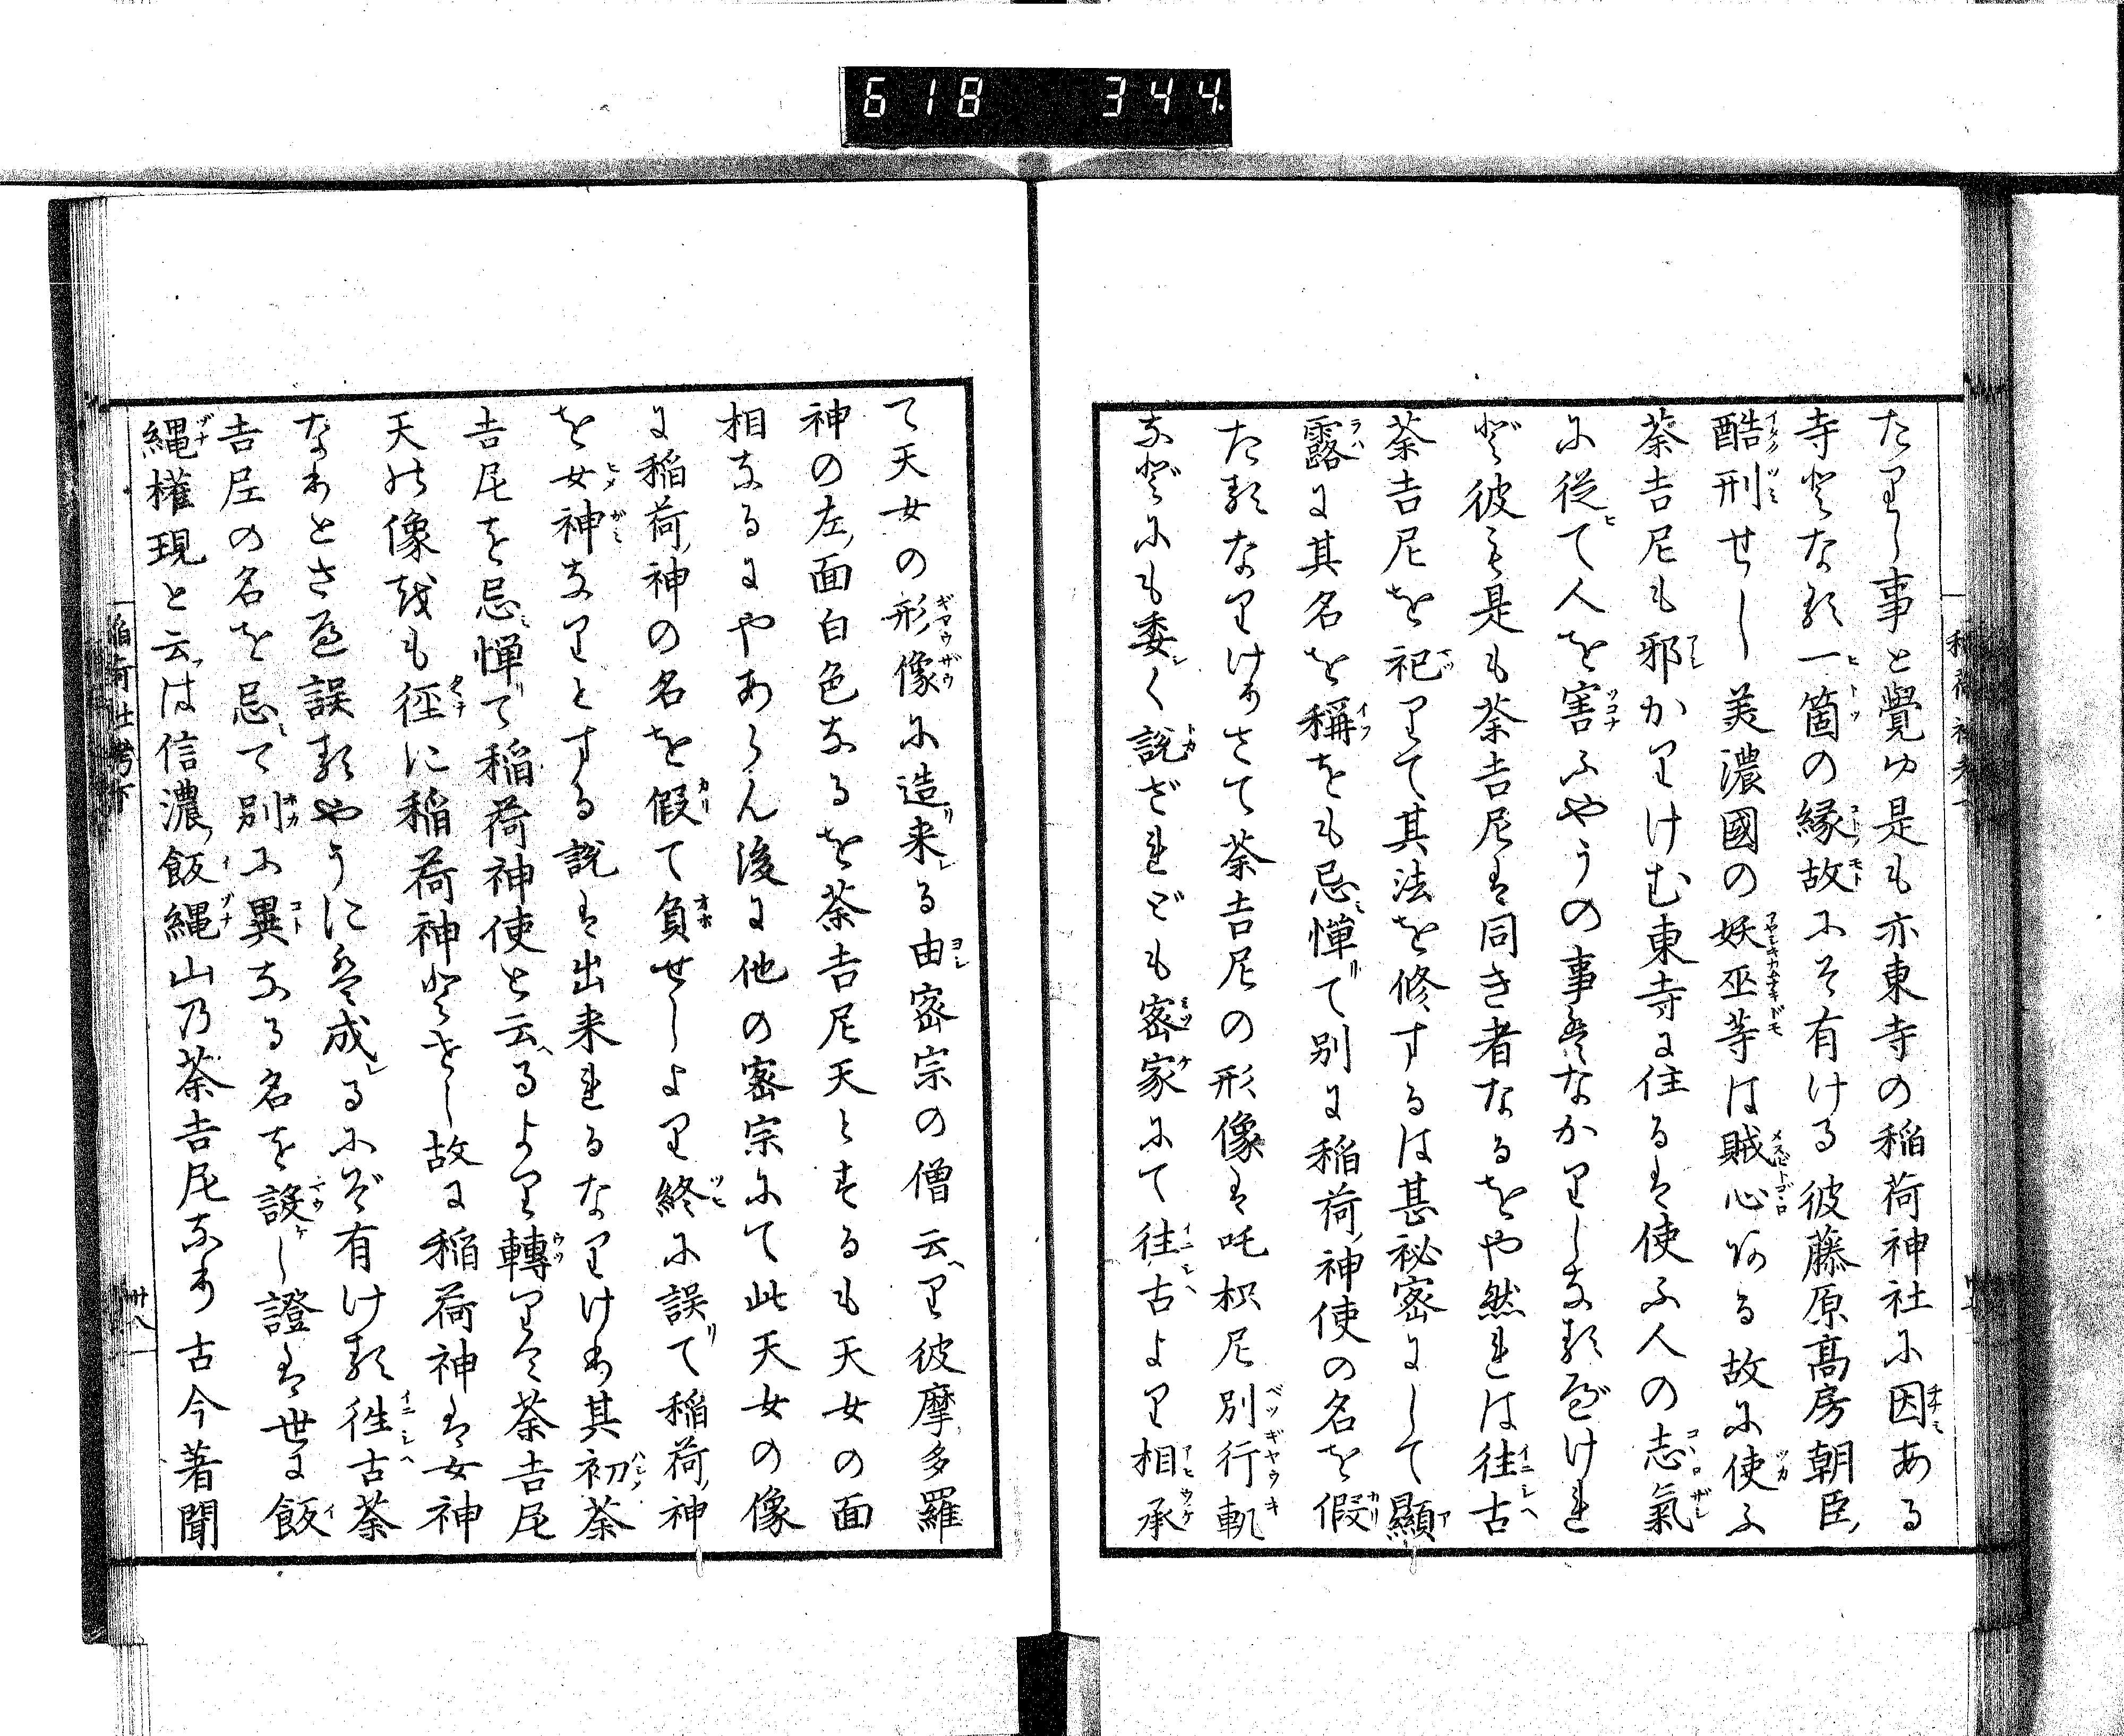 618 344
たりし事と覺ゆ是も亦東寺の稲荷神社に因ある
寺どなる一箇の縁故にそ有ける彼藤原髙房朝臣
酷刑せし美濃國の妖巫等は賊心ある故に使ふ
荼吉尼も邪かりけむ東寺に住るは使ふ人の志氣
に従て人を害ふやうの事はなかりしなるべけれ
ど彼も是も荼吉尼は同き者なるをや然れは往古
荼吉尼を祀りて其法を修するは甚祕密にして顯
露に其名を稱をも忌憚て別に稲荷神使の名を假
たるなりけりさて荼吉尼の形像は吒枳尼別行軌
などにも委く說ざれども密家にて往古より相承
て天女の形像に造来る由密宗の僧云り彼摩多羅
神の左面白色なるを荼吉尼天とするも天女の面
相なるにやあらん後に他の密宗にて此天女の像
に稲荷神の名を假て負せしより終に誤て稲荷神
を女神なりとする說は出来れるなりけり其初荼
吉尼を忌憚て稲荷神使と云るより轉りては荼吉尼
天の像をも徑に稲荷神とせし故に稲荷神は女神
なりとさへ誤るやうには成るにぞ有ける往古荼
吉尼の名を忌て別に異なる名を設し證は世に飯
縄權現と云は信濃飯縄山乃荼吉尼なり古今著聞
稲荷社考下
卅八